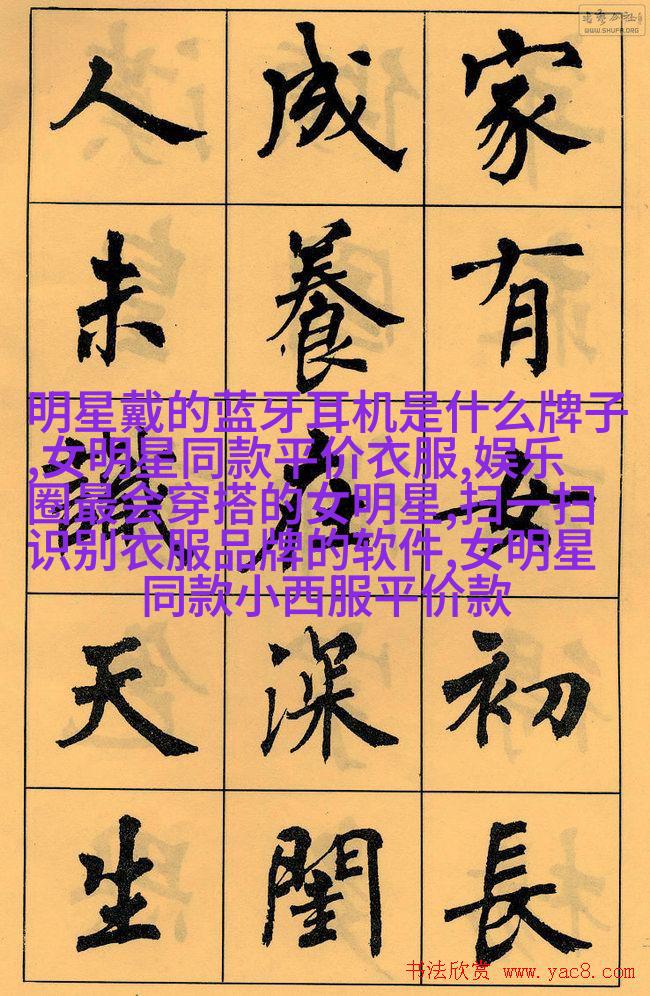 WWW.SHUFA.ORG
家有女初長
成養在深閨
人未識天生
明星戴的蓝牙耳机是什么牌子
,女明星同款平价衣服,娱乐
圈最会穿搭的女明星,扫一扫
识别衣服品牌的软件,女明星
同款小西服平价款
书法欣赏 www.yac8.com